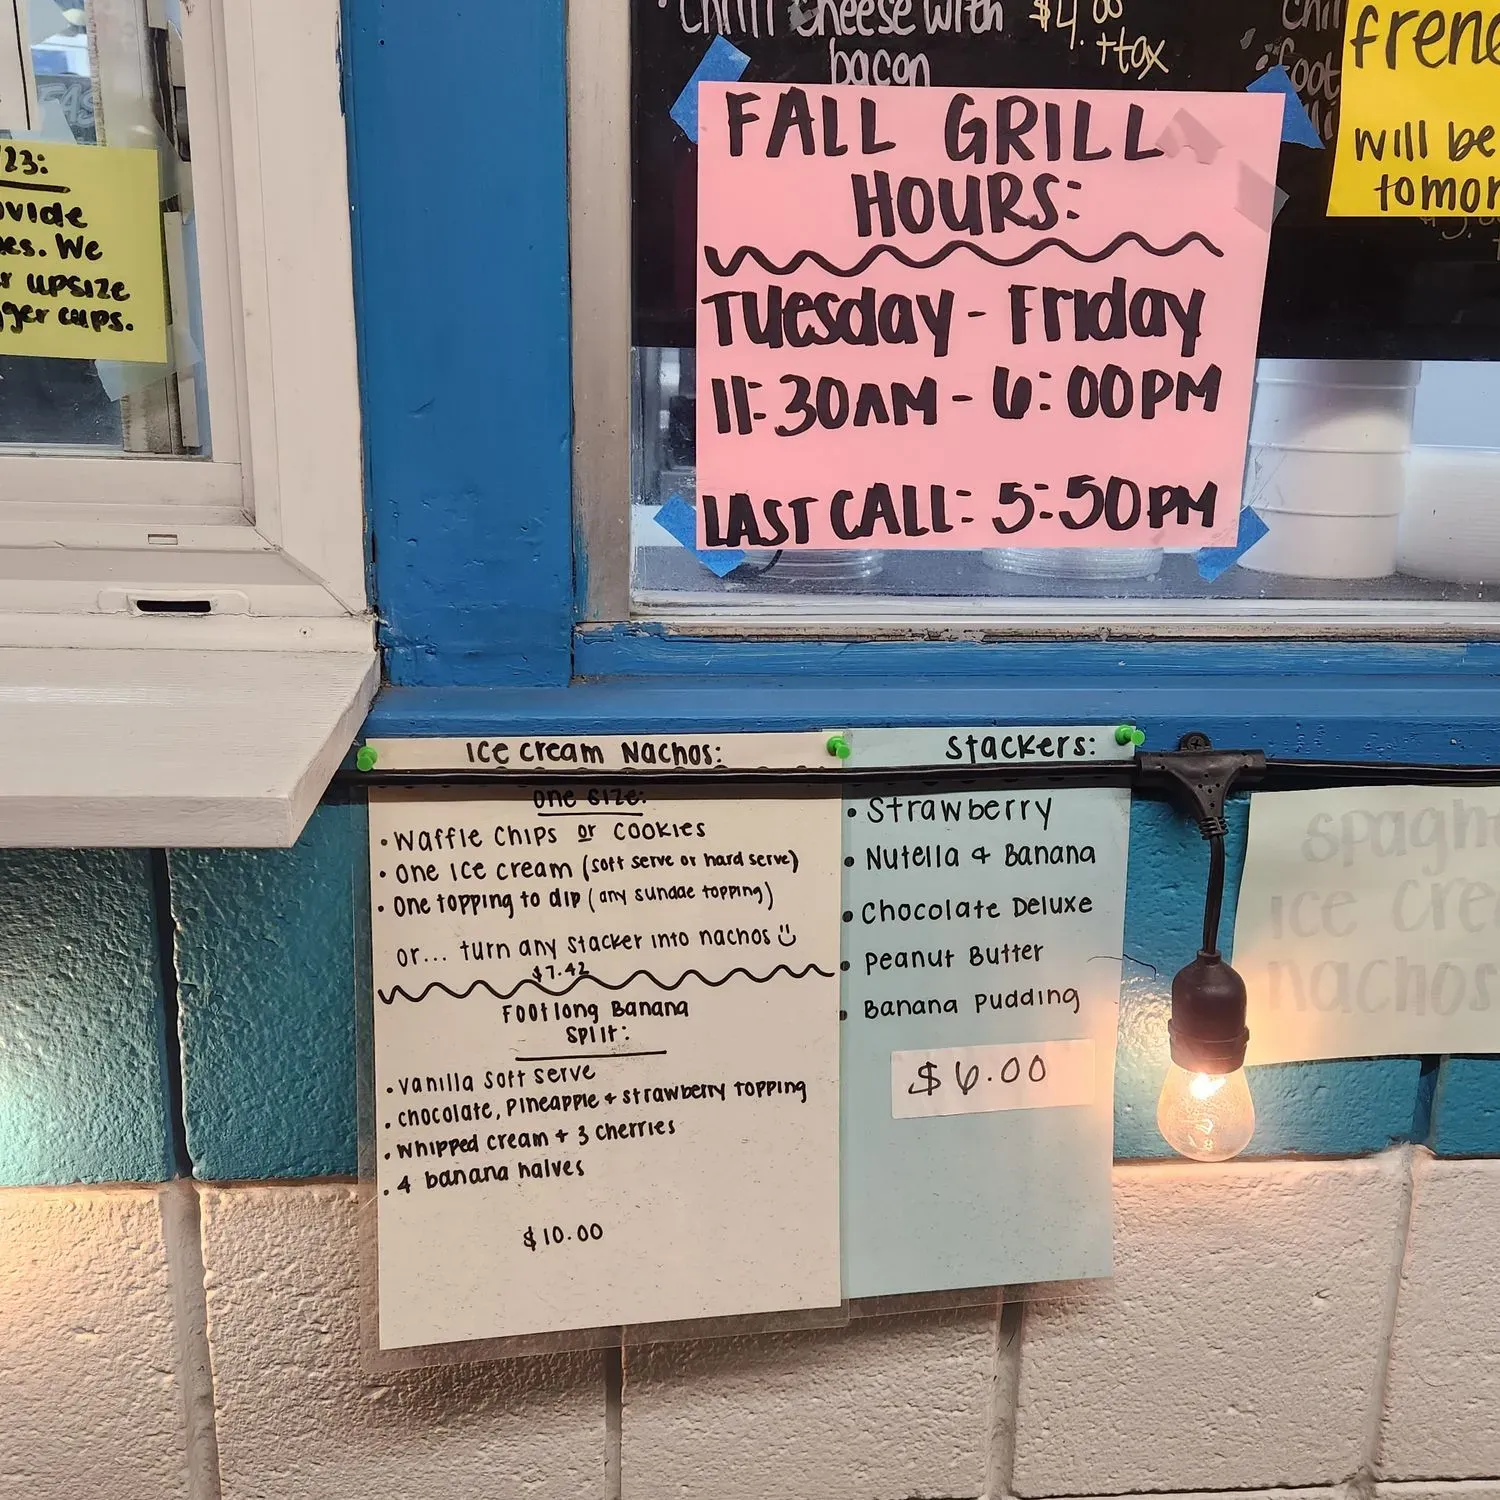 Chili Cheese with $4.00
bacon +tax
frenc
will be
tomor
FALL GRILL
HOURS:
Tuesday - Friday
11:30AM - 6:00PM
LAST CALL: 5:50PM
/23:
ovide
es. We
r upsize
gger cups.
Ice cream Nachos:
One Size:
• Waffle Chips or Cookies
• One Ice cream (soft serve or hard serve)
• One topping to dip (any sundae topping)
or... turn any stacker into nachos
$7.42
Footlong Banana
Split:
• Vanilla Soft Serve
• Chocolate, Pineapple + Strawberry Topping
• Whipped cream + 3 Cherries
• 4 banana halves
$10.00
Stackers:
• Strawberry
• Nutella & Banana
• Chocolate Deluxe
• Peanut Butter
• Banana Pudding
$6.00
Spagh
Ice Cre
Nachos